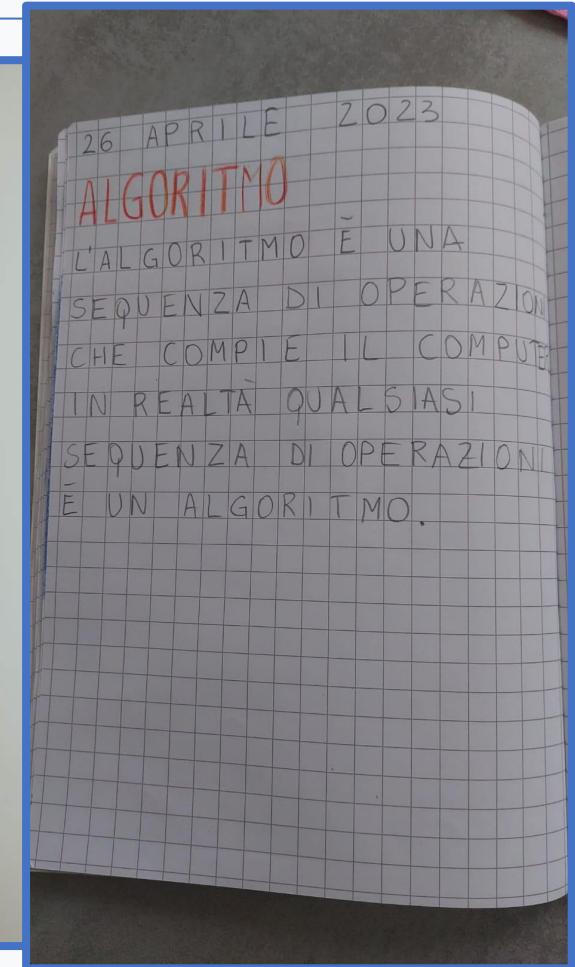 26 APRILE 2023
ALGORITMO
L'ALGORITMO È UNA
SEQUENZA DI OPERAZION
CHE COMPIE IL COMPUTE
IN REALTÀ QUALSIASI
SEQUENZA DI OPERAZIONI
È UN ALGORITMO.